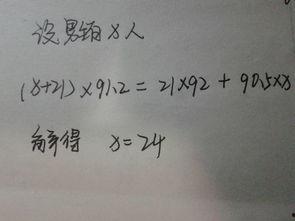 设男有x人
(x+21)×91.2=21×92+90.5×x
解得 x=24